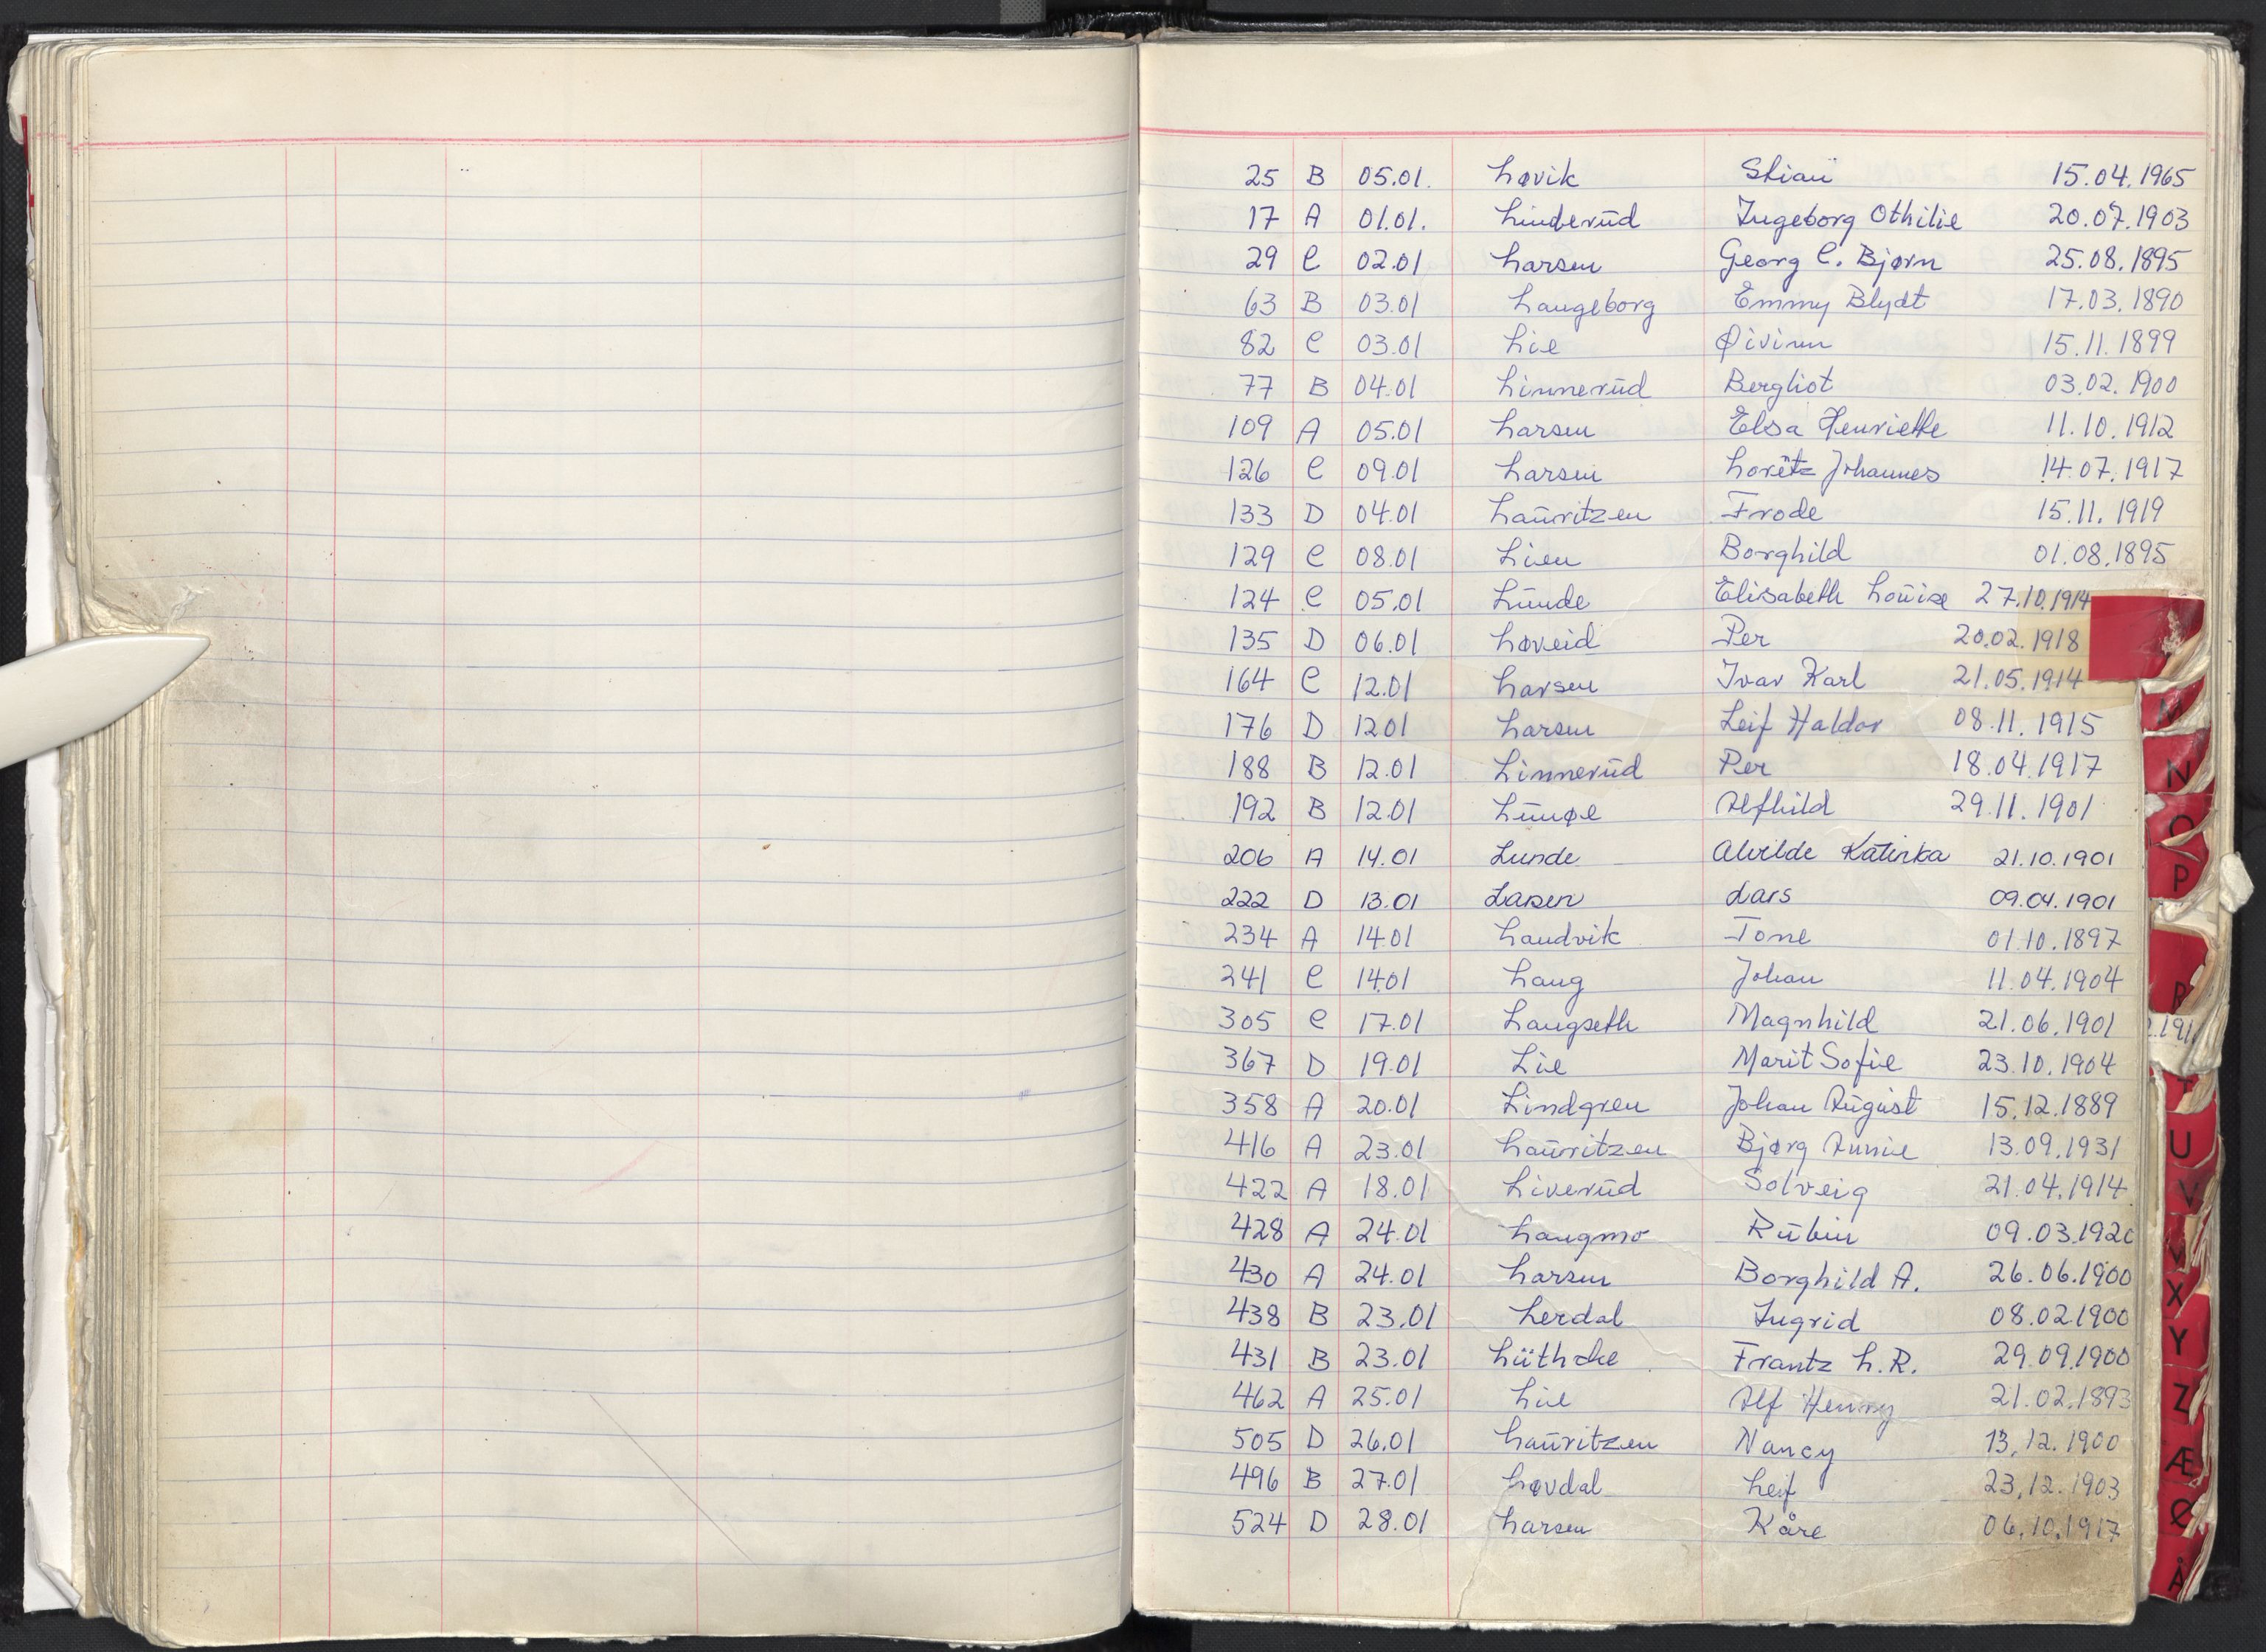 25 B 05.01. Løvik Stian 15.04.1965
17 A 01.01. Linderud Ingeborg Othilie 20.07.1903
29 C 02.01 Larsen Georg C. Bjørn 25.08.1895
63 B 03.01 Langeborg Emmy Blydt 17.03.1890
82 C 03.01 Lie Øivinn 15.11.1899
77 B 04.01 Linnerud Bergliot 03.02.1900
109 A 05.01 Larsen Elsa Henriette 11.10.1912
126 C 09.01 Larsen Loretz Johannes 14.07.1917
133 D 04.01 Lauritzen Frode 15.11.1919
129 C 08.01 Lien Borghild 01.08.1895
124 C 05.01 Lunde Elisabeth Louise 27.10.1914
135 D 06.01 Løveid Per 20.02.1918
164 C 12.01 Larsen Ivar Karl 21.05.1914
176 D 12.01 Larsen Leif Haldor 08.11.1915
188 B 12.01 Linnerud Per 18.04.1917
192 B 12.01 Lunøe Alfhild 29.11.1901
206 A 14.01 Lunde Alvilde Katinka 21.10.1901
222 D 13.01 Larsen Lars 09.04.1901
234 A 14.01 Landvik Tone 01.10.1897
241 C 14.01 Laug Johan 11.04.1904
305 C 17.01 Langseth Magnhild 21.06.1901
367 D 19.01 Lie Marit Sofie 23.10.1904
358 A 20.01 Lindgren Johan August 15.12.1889
416 A 23.01 Lauritzen Bjørg Annie 13.09.1931
422 A 18.01 Liverud Solveig 21.04.1914
428 A 24.01 Langmo Rubin 09.03.1920
430 A 24.01 Larsen Borghild A. 26.06.1900
438 B 23.01 Lerdal Ingrid 08.02.1900
431 B 23.01 Lüthcke Frantz L.R. 29.09.1900
462 A 25.01 Lie Alf Henry 21.02.1893
505 D 26.01 Lauritzen Nancy 13.12.1900
496 B 27.01 Løvdal Leif 23.12.1903
524 D 28.01 Larsen Kåre 06.10.1917
M
N
O
P
R
T
U
V
W
X
Y
Z
Æ
Ø
Å